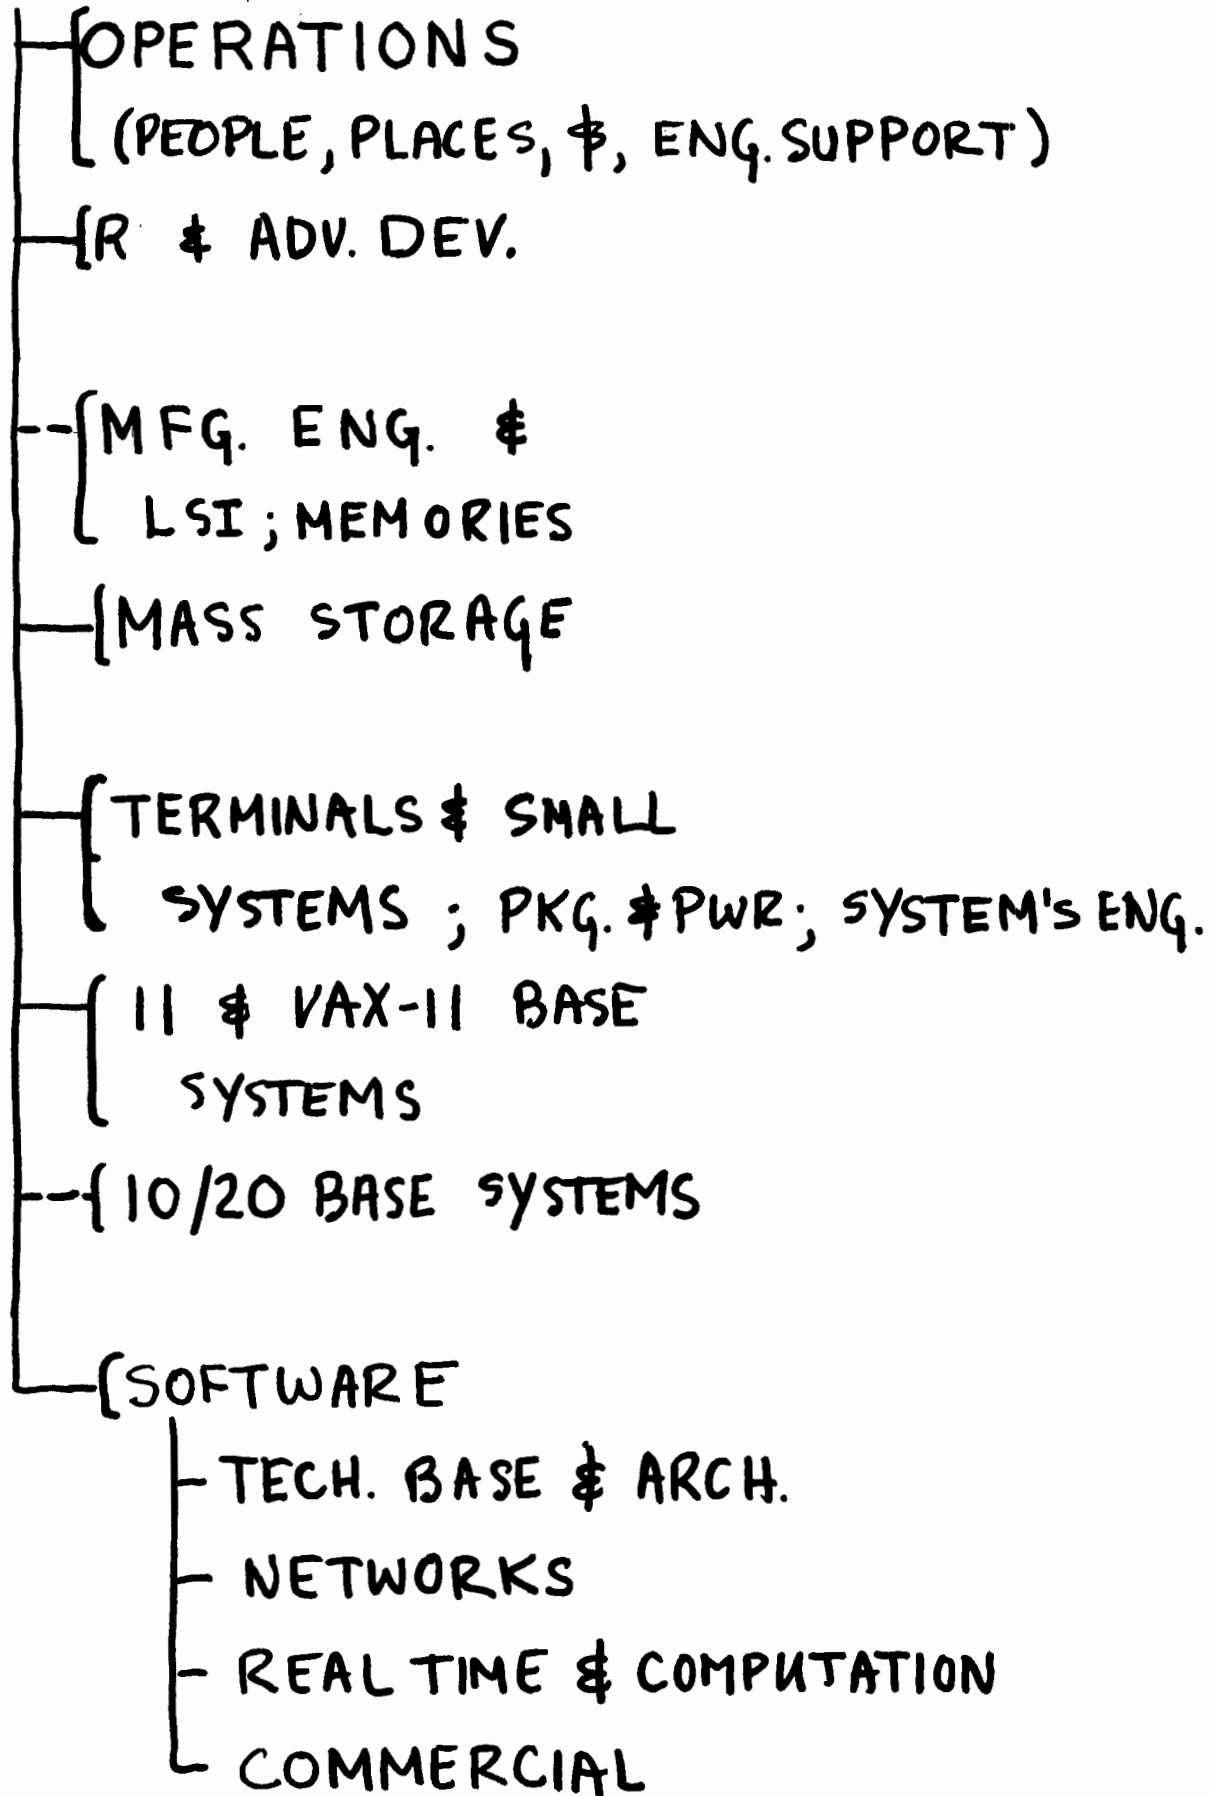 OPERATIONS
(PEOPLE, PLACES, $, ENG. SUPPORT)
R & ADV. DEV.
MFG. ENG. &
LSI; MEMORIES
MASS STORAGE
TERMINALS & SMALL
SYSTEMS; PKG. & PWR; SYSTEM'S ENG.
11 & VAX-11 BASE
SYSTEMS
10/20 BASE SYSTEMS
SOFTWARE
TECH. BASE & ARCH.
NETWORKS
REAL TIME & COMPUTATION
COMMERCIAL